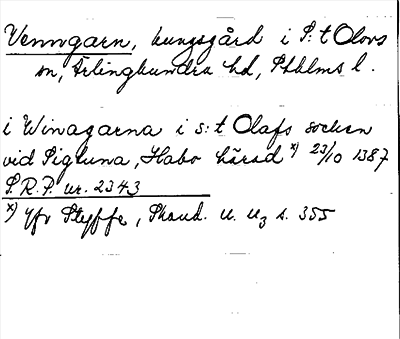 Venngarn, kungsgård i S:t Olovs
sn, Ärlinghundra hd, Sthlms l.
i Winagarna i s:t Olafs socken
vid Sigtuna, Habo härad x) 23/10 1387
S.R.P. nr. 2343
x) Jfr Styffe, Skand. u. u3 s. 355